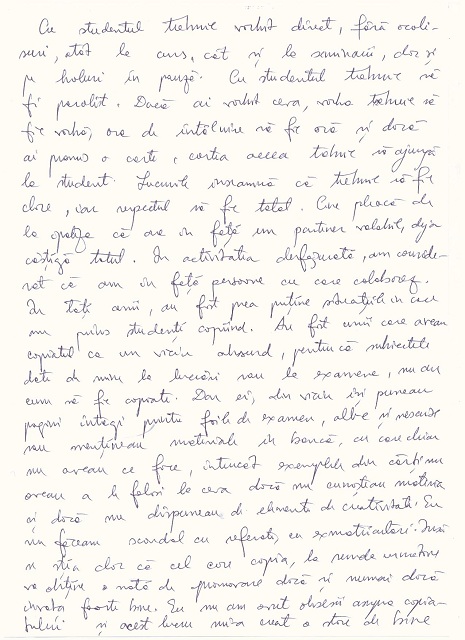 Cu studentul trebuie vorbit direct, fără ocoli-
suri, atât la curs, cât și la seminarii, dar și
pe holuri în pauză. Cu studentul trebuie să
fii parolist. Dacă ai vorbit ceva, vorba trebuie să
fie vorbă, ora de întâlnire să fie oră și dacă
ai promis o carte, cartea aceea trebuie să ajungă
la student. Lucrurile înseamnă că trebuie să fie
clare, iar respectul să fie total. Cine pleacă de
la ideea că are în față un partener valabil, deja
câștigă totul. În activitatea desfășurată, am conside-
rat că am în față persoane cu care colaborez.
În toți anii, au fost prea puține situațiile în care
am prins studenți copiind. Au fost unii care aveau
copiatul ca un viciu absurd, pentru că subiectele
date de mine la lucrări sau la examene, nu au
cum să fie copiate. Dar ei, din viciu își puneau
pagini întregi printre foile de examen, albe și nescrise
sau mențineau materiale în bancă, cu care chiar
nu aveau ce face, întrucât exemplele din cărți nu
aveau a le folosi la ceva dacă nu cunoșteau materia
și dacă nu dispuneau de elemente de creativitate. Eu
nu făceam scandal cu referate, cu exmatriculări. Însă
se știa clar că cel care copia, la runde următoare
va obține o notă de promovare dacă și numai dacă
învăța foarte bine. Eu nu am avut obsesii asupra copia-
tului și acest lucru mi-a creat o stare de bine